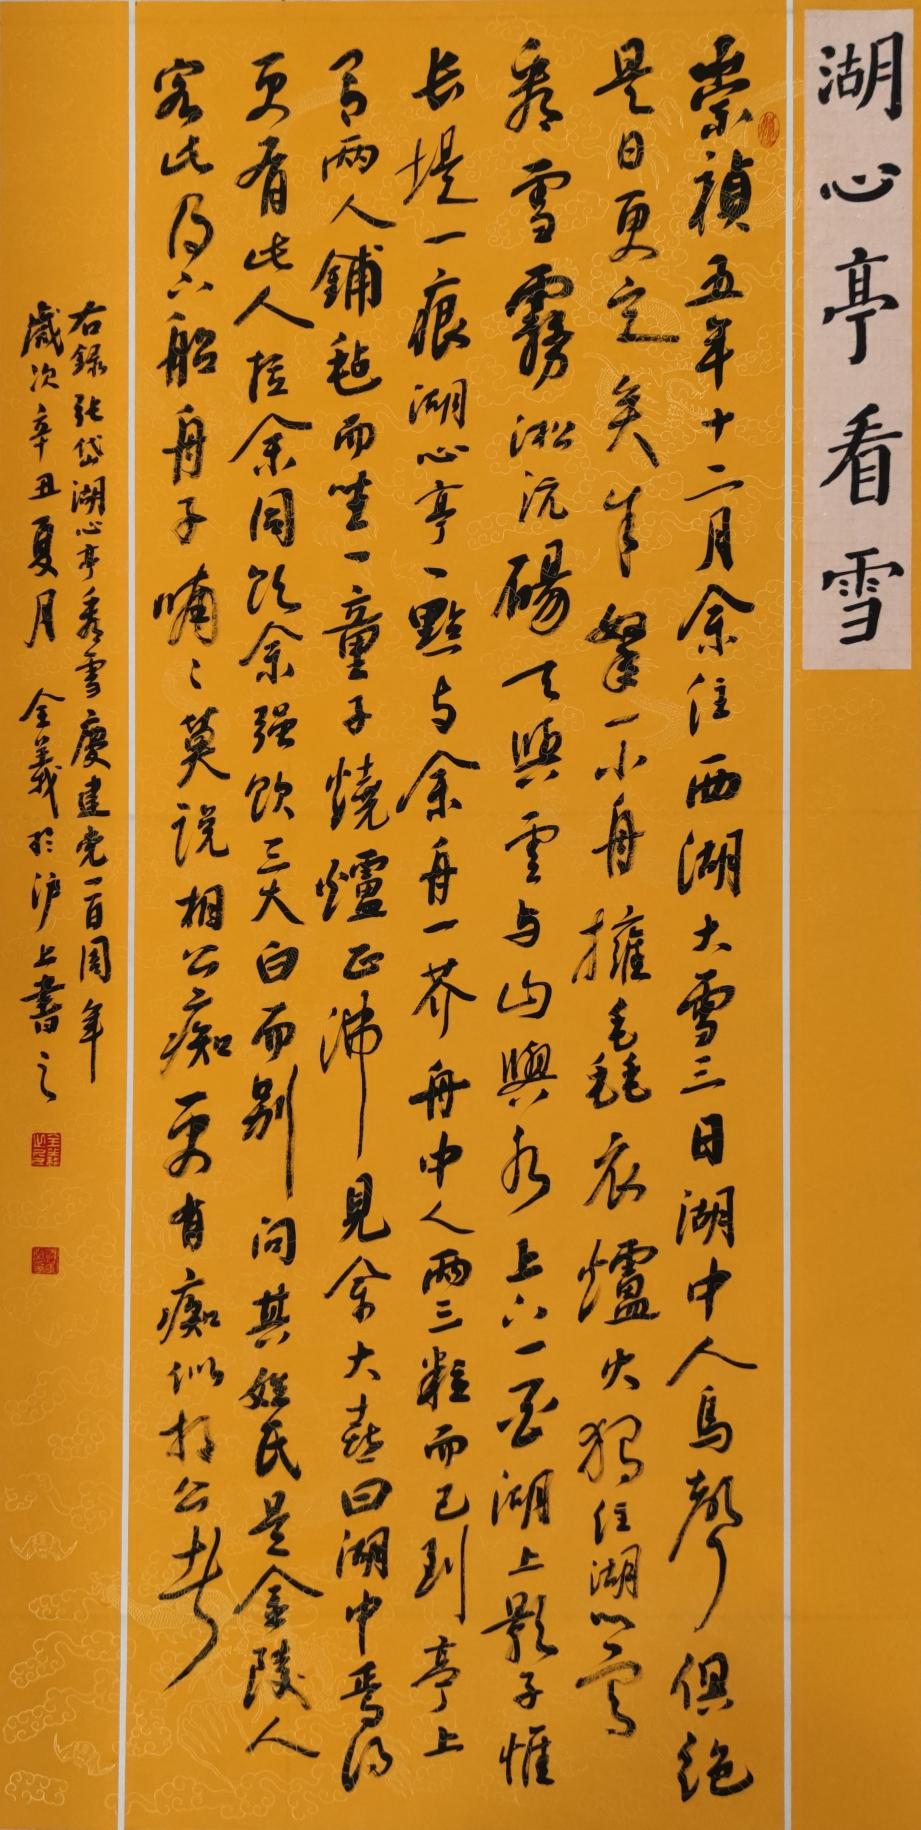 湖心亭看雪
崇禎五年十二月余住西湖大雪三日湖中人鳥聲俱絕
是日更定矣余拏一小舟擁毳衣爐火獨往湖心亭
看雪霧淞沆碭天與雲与山與水上下一白湖上影子惟
長堤一痕湖心亭一點与余舟一芥舟中人兩三粒而已到亭上
有兩人鋪氈而坐一童子燒爐正沸見余大喜曰湖中焉得
更有此人拉余同飲余强飲三大白而别問其姓氏是金陵人
客此及下船舟子喃〻莫说相公痴更有痴似相公者
右錄張岱湖心亭看雪慶建党一百周年
歲次辛丑夏月 全義於沪上書之